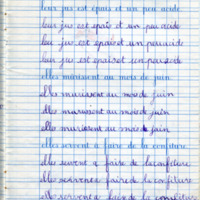 leur jus est épais et un peu acide
leur jus est épais et un peu acide
leur jus est épais et un peu acide
leur jus est épais et un peu acide
elles mûrissent au mois de juin.
elles murissent au mois de juin
elles murissent au mois de juin
elles murissent au mois de juin
elles servent à faire de la confiture
elles servent a faire de la confiture
elles servent a faire de la confiture
elles servent a faire de la confiture